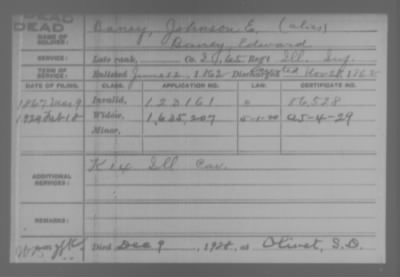 DEAD
DEAD
NAME OF SOLDIER: Baney, Johnson E. (alias)
Baney, Edward
SERVICE: Late rank, Co. D, 65 Reg't Ill. Inf.
TERM OF SERVICE: Enlisted June 12, 1862 Discharged Deserted Nov 28, 1862
DATE OF FILING. CLASS. APPLICATION NO. LAW. CERTIFICATE NO.
1867 Mar 9 Invalid, 123161 86,528
1929 Feb 18 Widow, 1,635,207 5-1-20 A5-4-29
Minor,
ADDITIONAL SERVICES: K 14 Ill Cav.
REMARKS:
Died Dec 9, 1928, at Olivet, S.D.